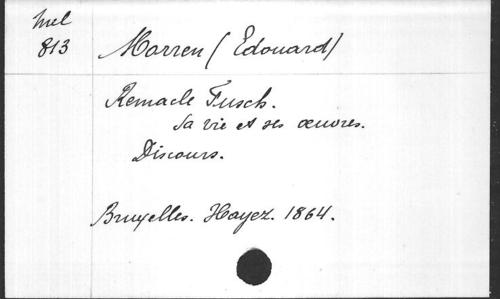 Mel
813
Morren (Edouard)
Remacle Fusch.
Sa vie et ses œuvres.
Discours.
Bruxelles. Hayez. 1864.